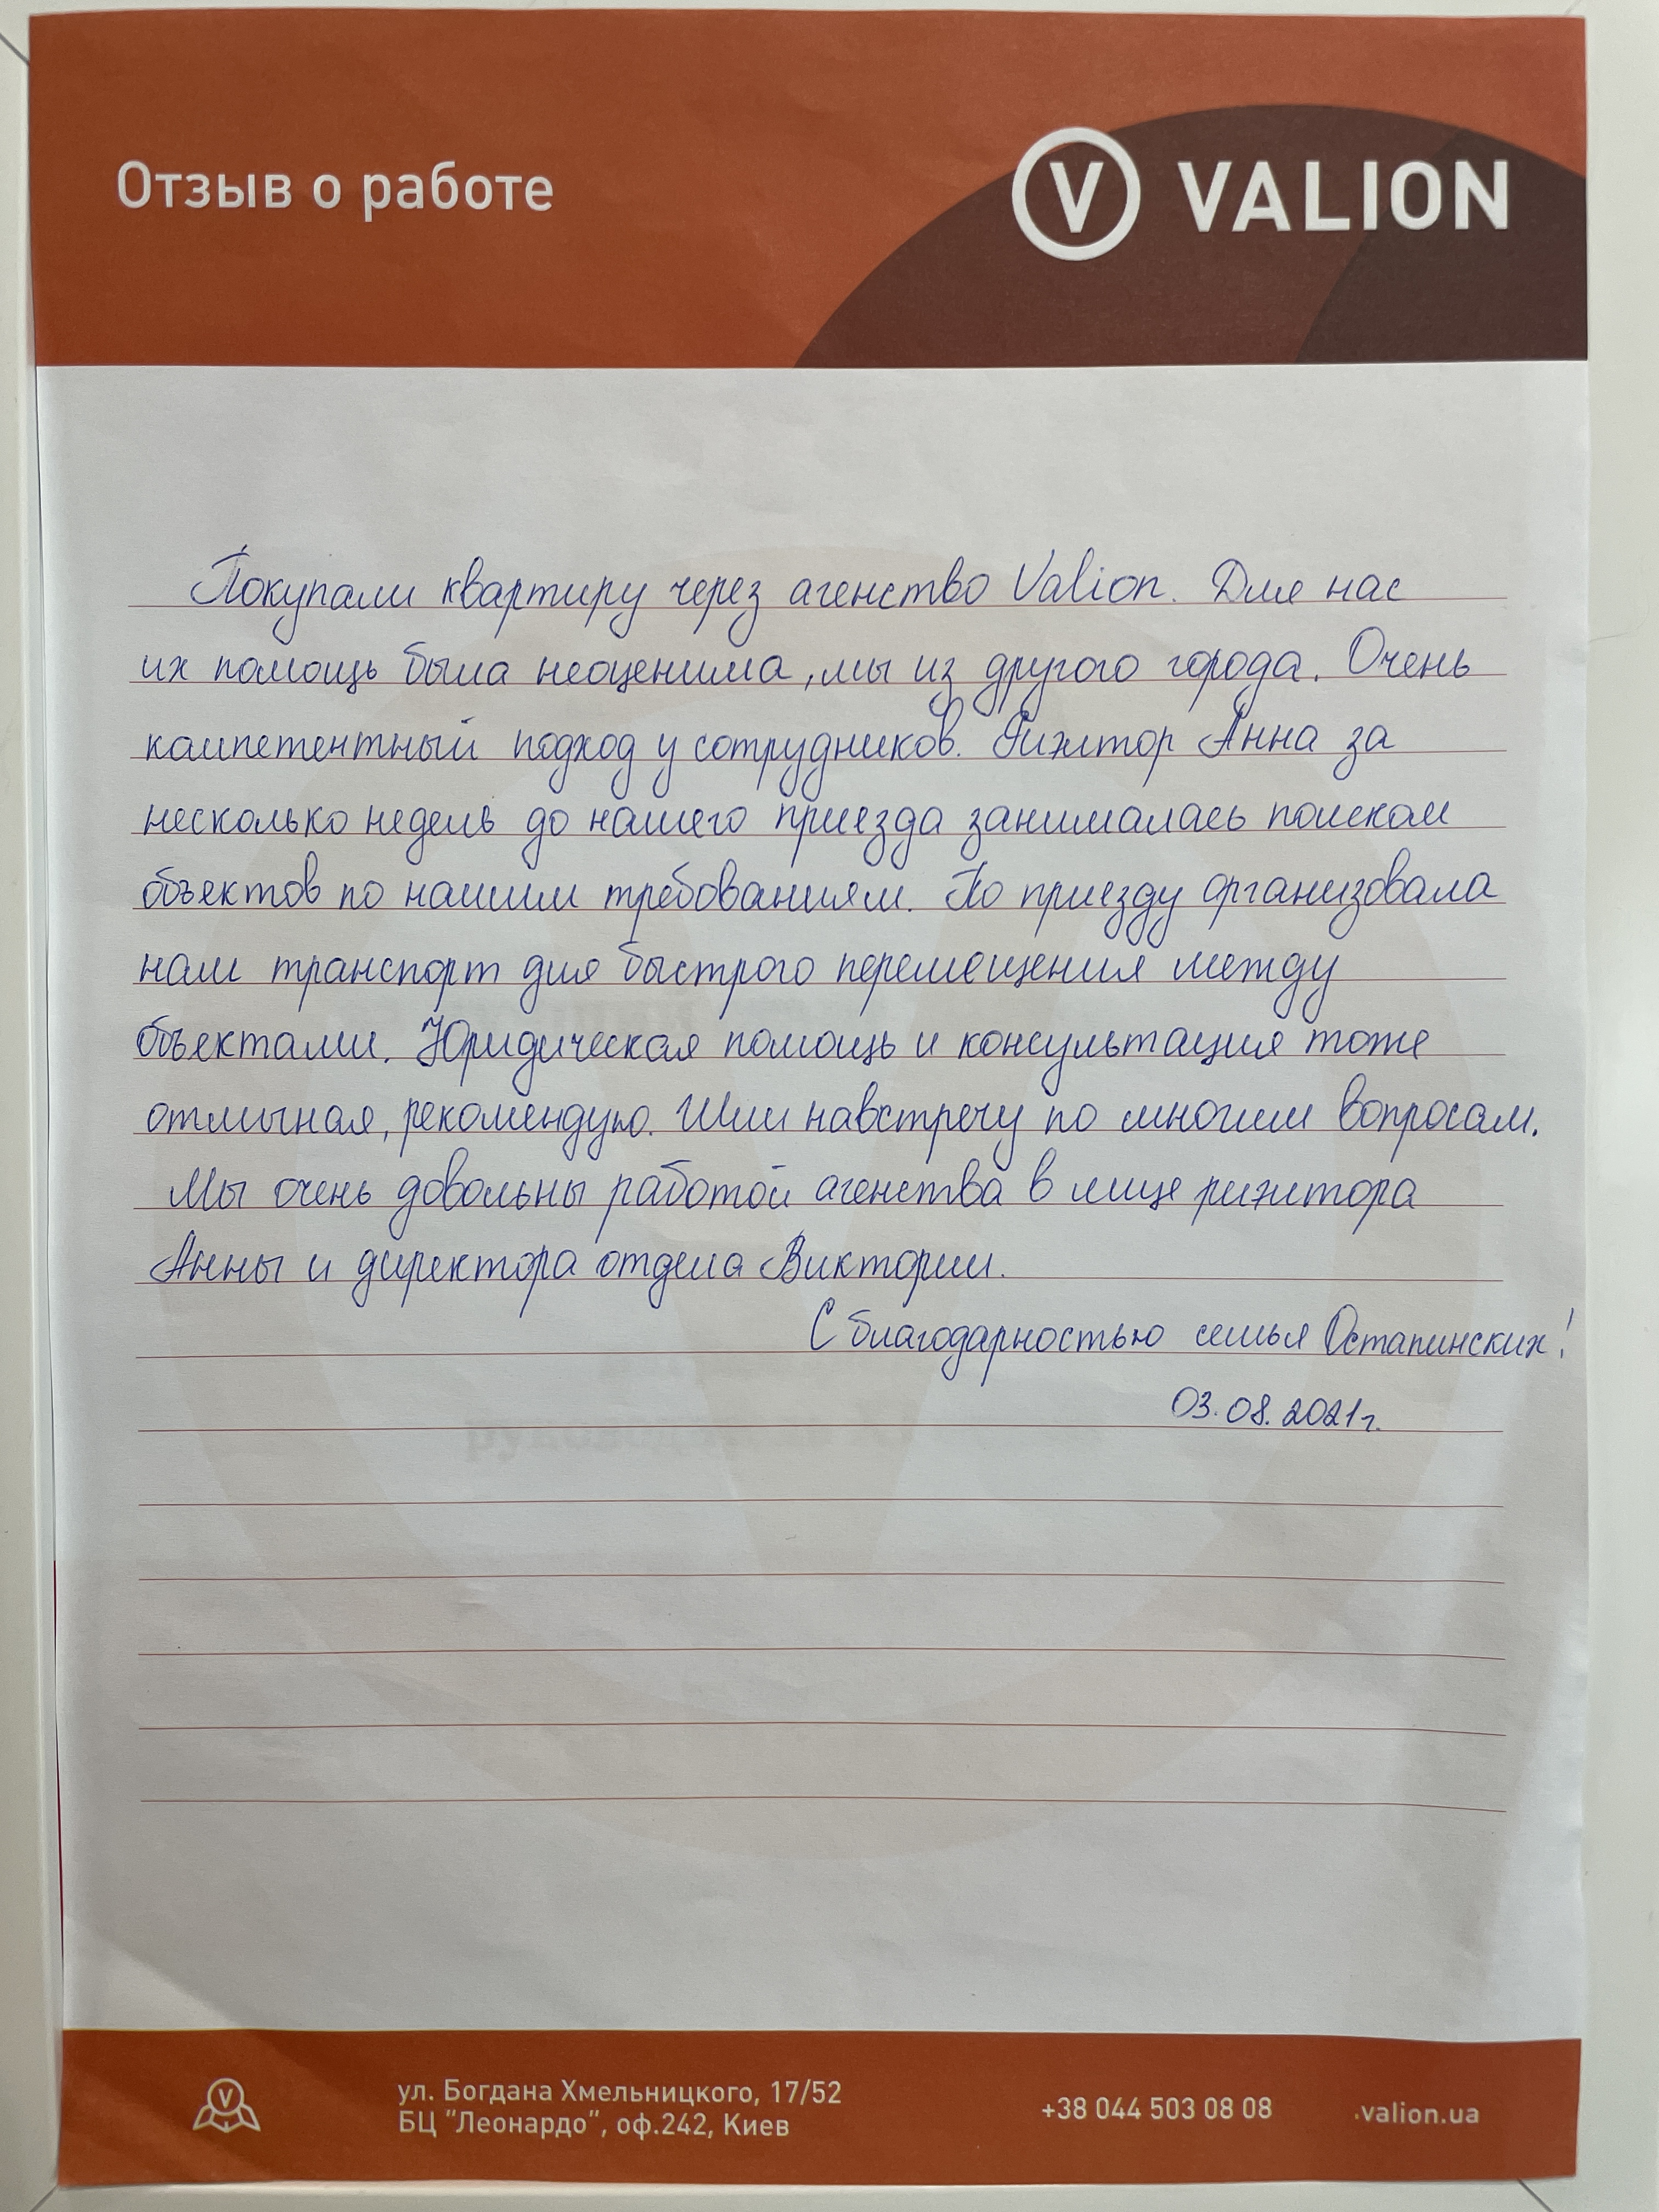 Отзыв о работе
VALION
Покупали квартиру через агенство Valion. Для нас
их помощь была неоценима, мы из другого города. Очень
компетентный подход у сотрудников. Риэлтор Анна за
несколько недель до нашего приезда занималась поиском
объектов по нашим требованиям. По приезду организовала
нам транспорт для быстрого перемещения между
объектами. Юридическая помощь и консультация тоже
отличная, рекомендую. Шли навстречу по многим вопросам.
Мы очень довольны работой агенства в лице риэлтора
Анны и директора отдела Виктории.
С благодарностью семья Остапинских!
03.08.2021г.
ул. Богдана Хмельницкого, 17/52
БЦ "Леонардо", оф.242, Киев
+38 044 503 08 08
.valion.ua